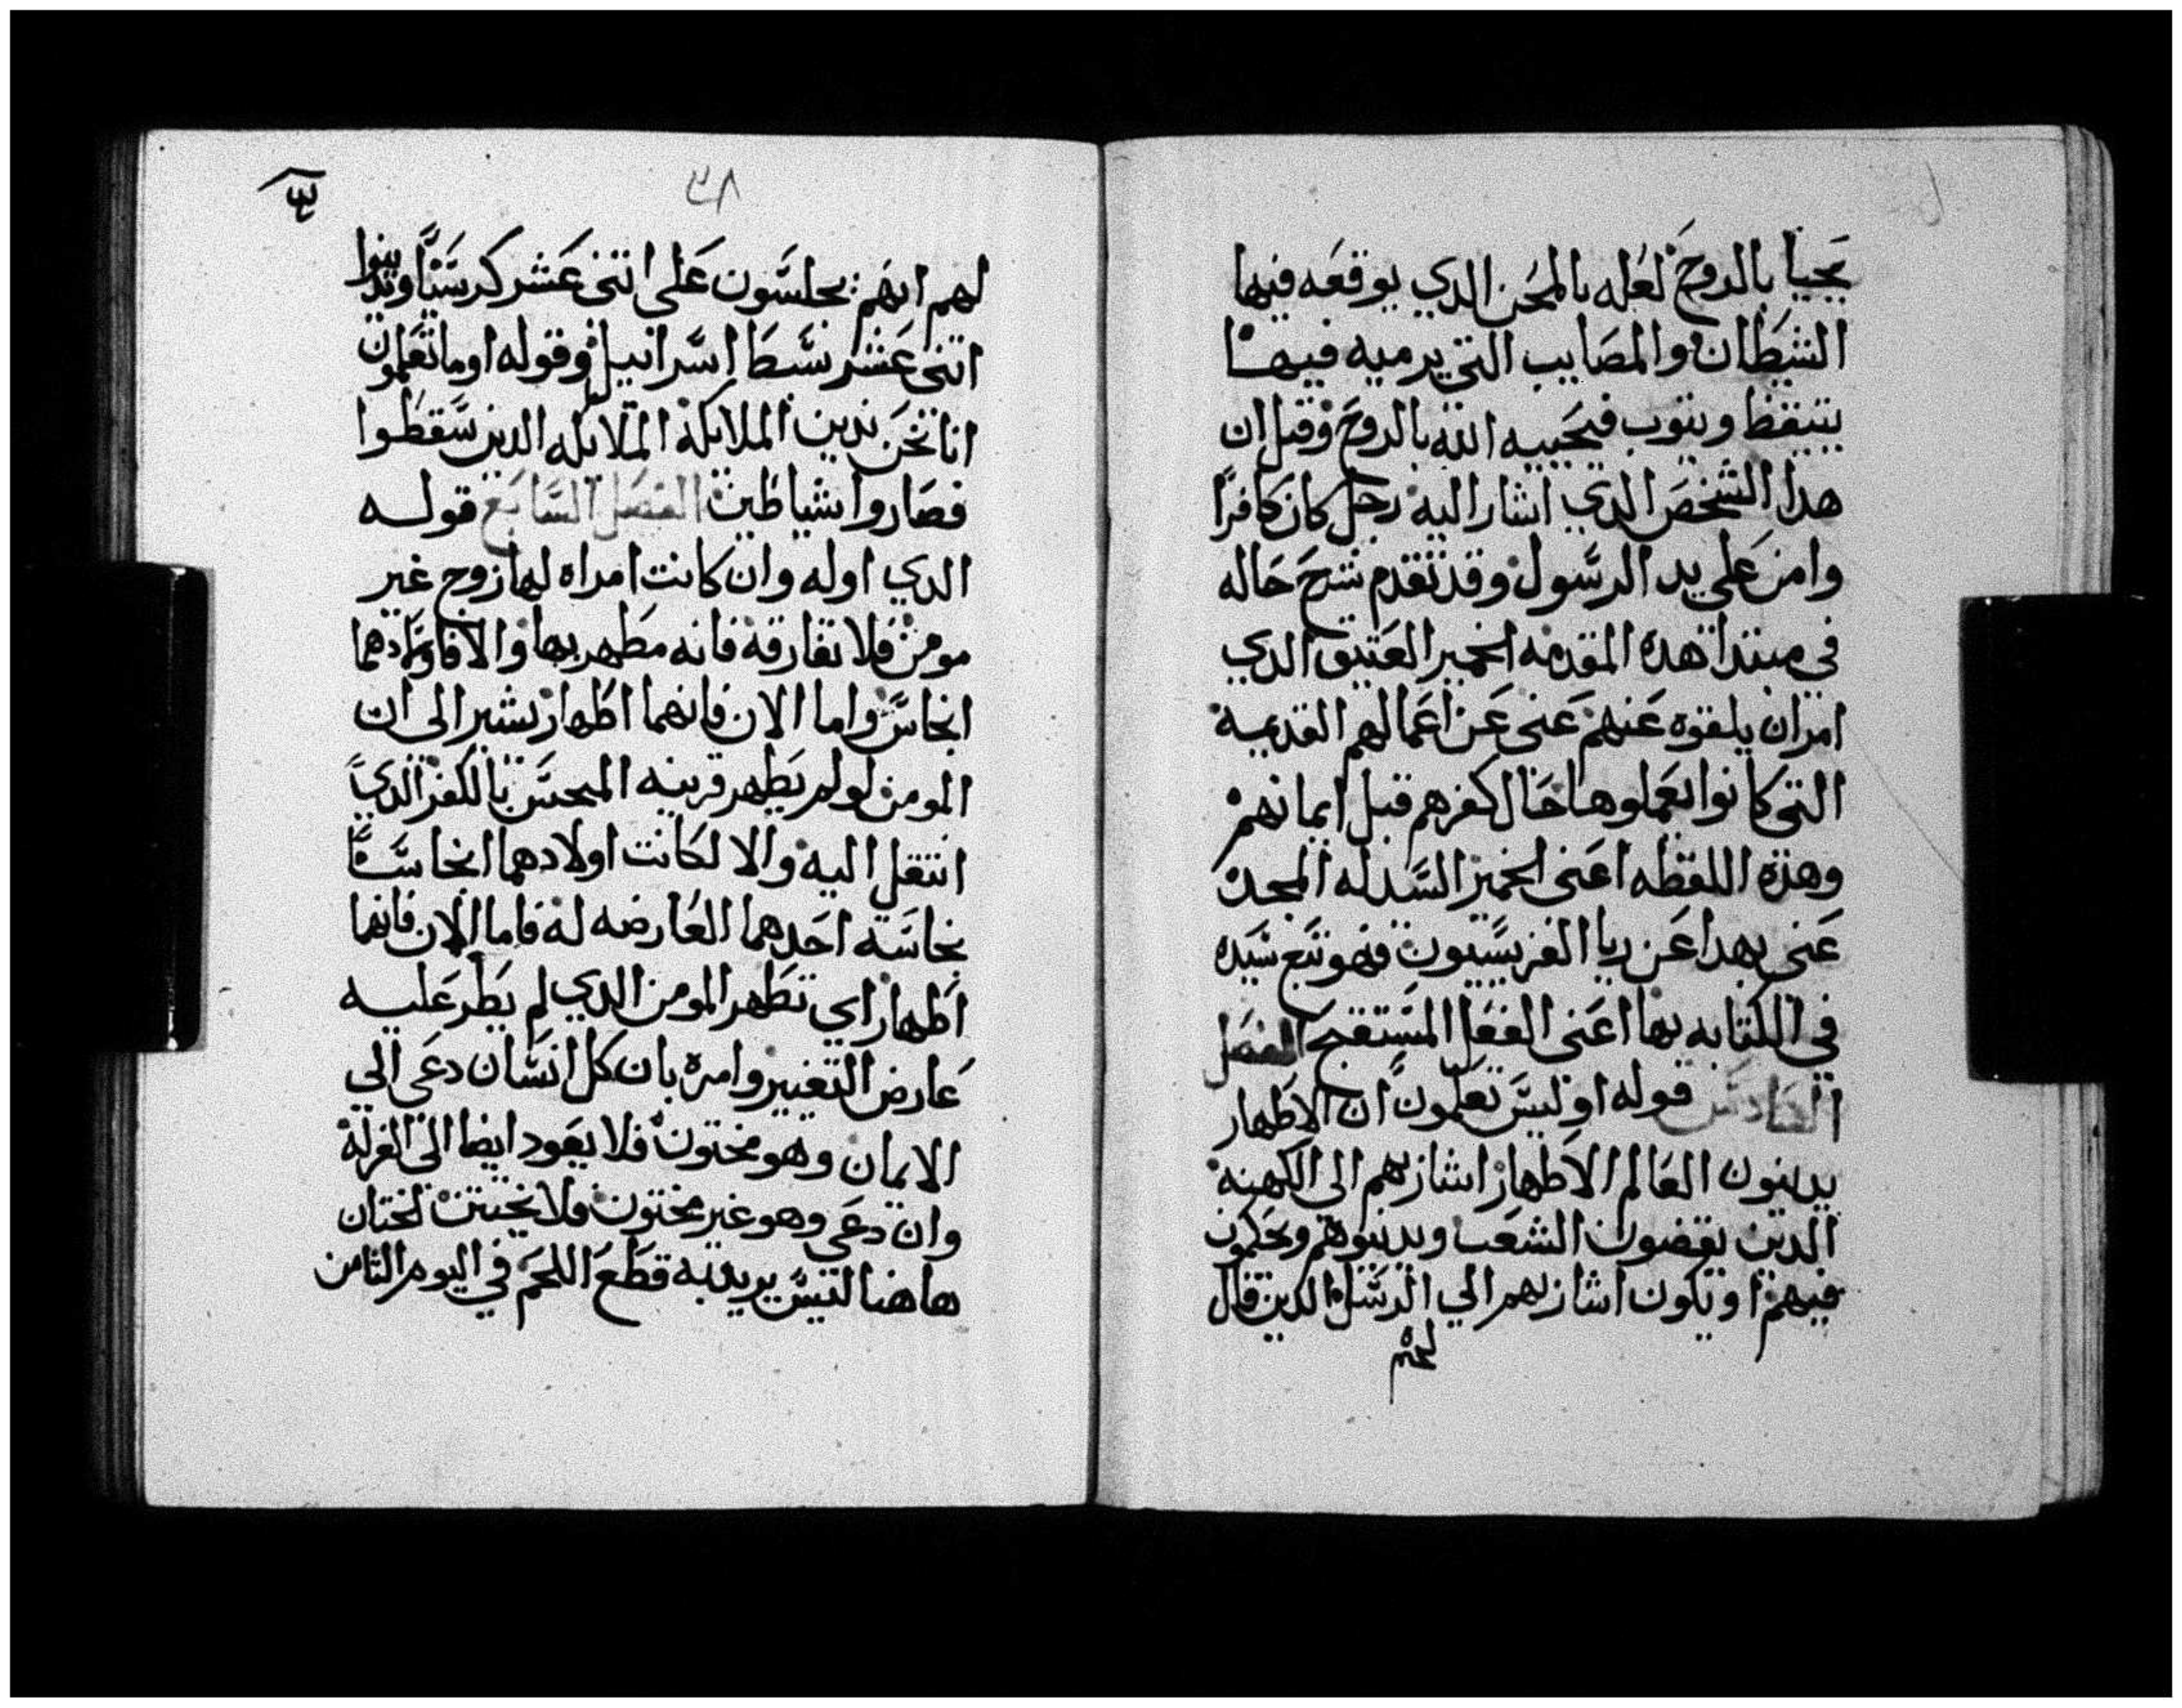 يحيا بالروح لعله بالمحن الدي يوقعه فيها
الشيطان والمصايب التي يرميه فيها
يتيقظ ويتوب فيحييه الله بالروح وقيل ان
هدا الشخص الدي اشار اليه رجل كان كافرا
وامن علي يد الرسول وقد تقدم شرح حاله
في مبتدا هده المقدمه الخمير العتيق الدي
امر ان يلقوه عنهم عني عن اعمالهم القديمه
التي كانوا يعملوها حال كفرهم قبل ايمانهم
وهذه اللفظه اعني الخمير السيد له المجد
عني بهدا عن ريا الفريسيون فهو تبع سيده
في الكتابه بها اعني الفعل المستقبح الفصل
السادس قوله او ليس تعلمون ان الاطهار
يدينون العالم الاطهار اشار بهم الى الكهنه
الدين يقضون الشعب ويدينوهم ويحكمون
فيهم او يكون اشار بهم الي الرسل الدين قال
لهم
٣٨
لهم انهم يجلسون على اتني عشر كرسيا ويدينوا
اتني عشر سبط اسرائيل وقوله اوما تعلمون
انا نحن ندين الملايكة الملايكه الدين سقطوا
فصاروا شياطين الفصل السابع قوله
الدي اوله وان كانت امراه لها زوج غير
مومن فلا تفارقه فانه مطهر بها والا فاولادهما
انجاس واما الان فانهما اطهار يشير الى ان
المومن لو لم يطهر قرينه المنجس بالكفر الدي
انتقل اليه والا لكانت اولادهما انجاسا
نجاسة احدهما العارضه له فاما الان فانهما
اطهار اي تطهر المومن الدي لم يطر عليه
عارض التغيير وامره بان كل انسان دعي الي
الايمان وهو مختون فلا يعود ايضا الى الغرلة
وان دعي وهو غير مختون فلا يختتن لختان
هاهنا ليس يريد به قطع اللحم في اليوم الثامن